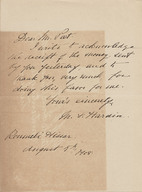 Dear Mr. Post
I write to acknowledge
the receipt of the money sent
by you yesterday and to
thank you very much for
doing this favor for me.
Yours sincerely,
M. S. Hardin
House
August 5th